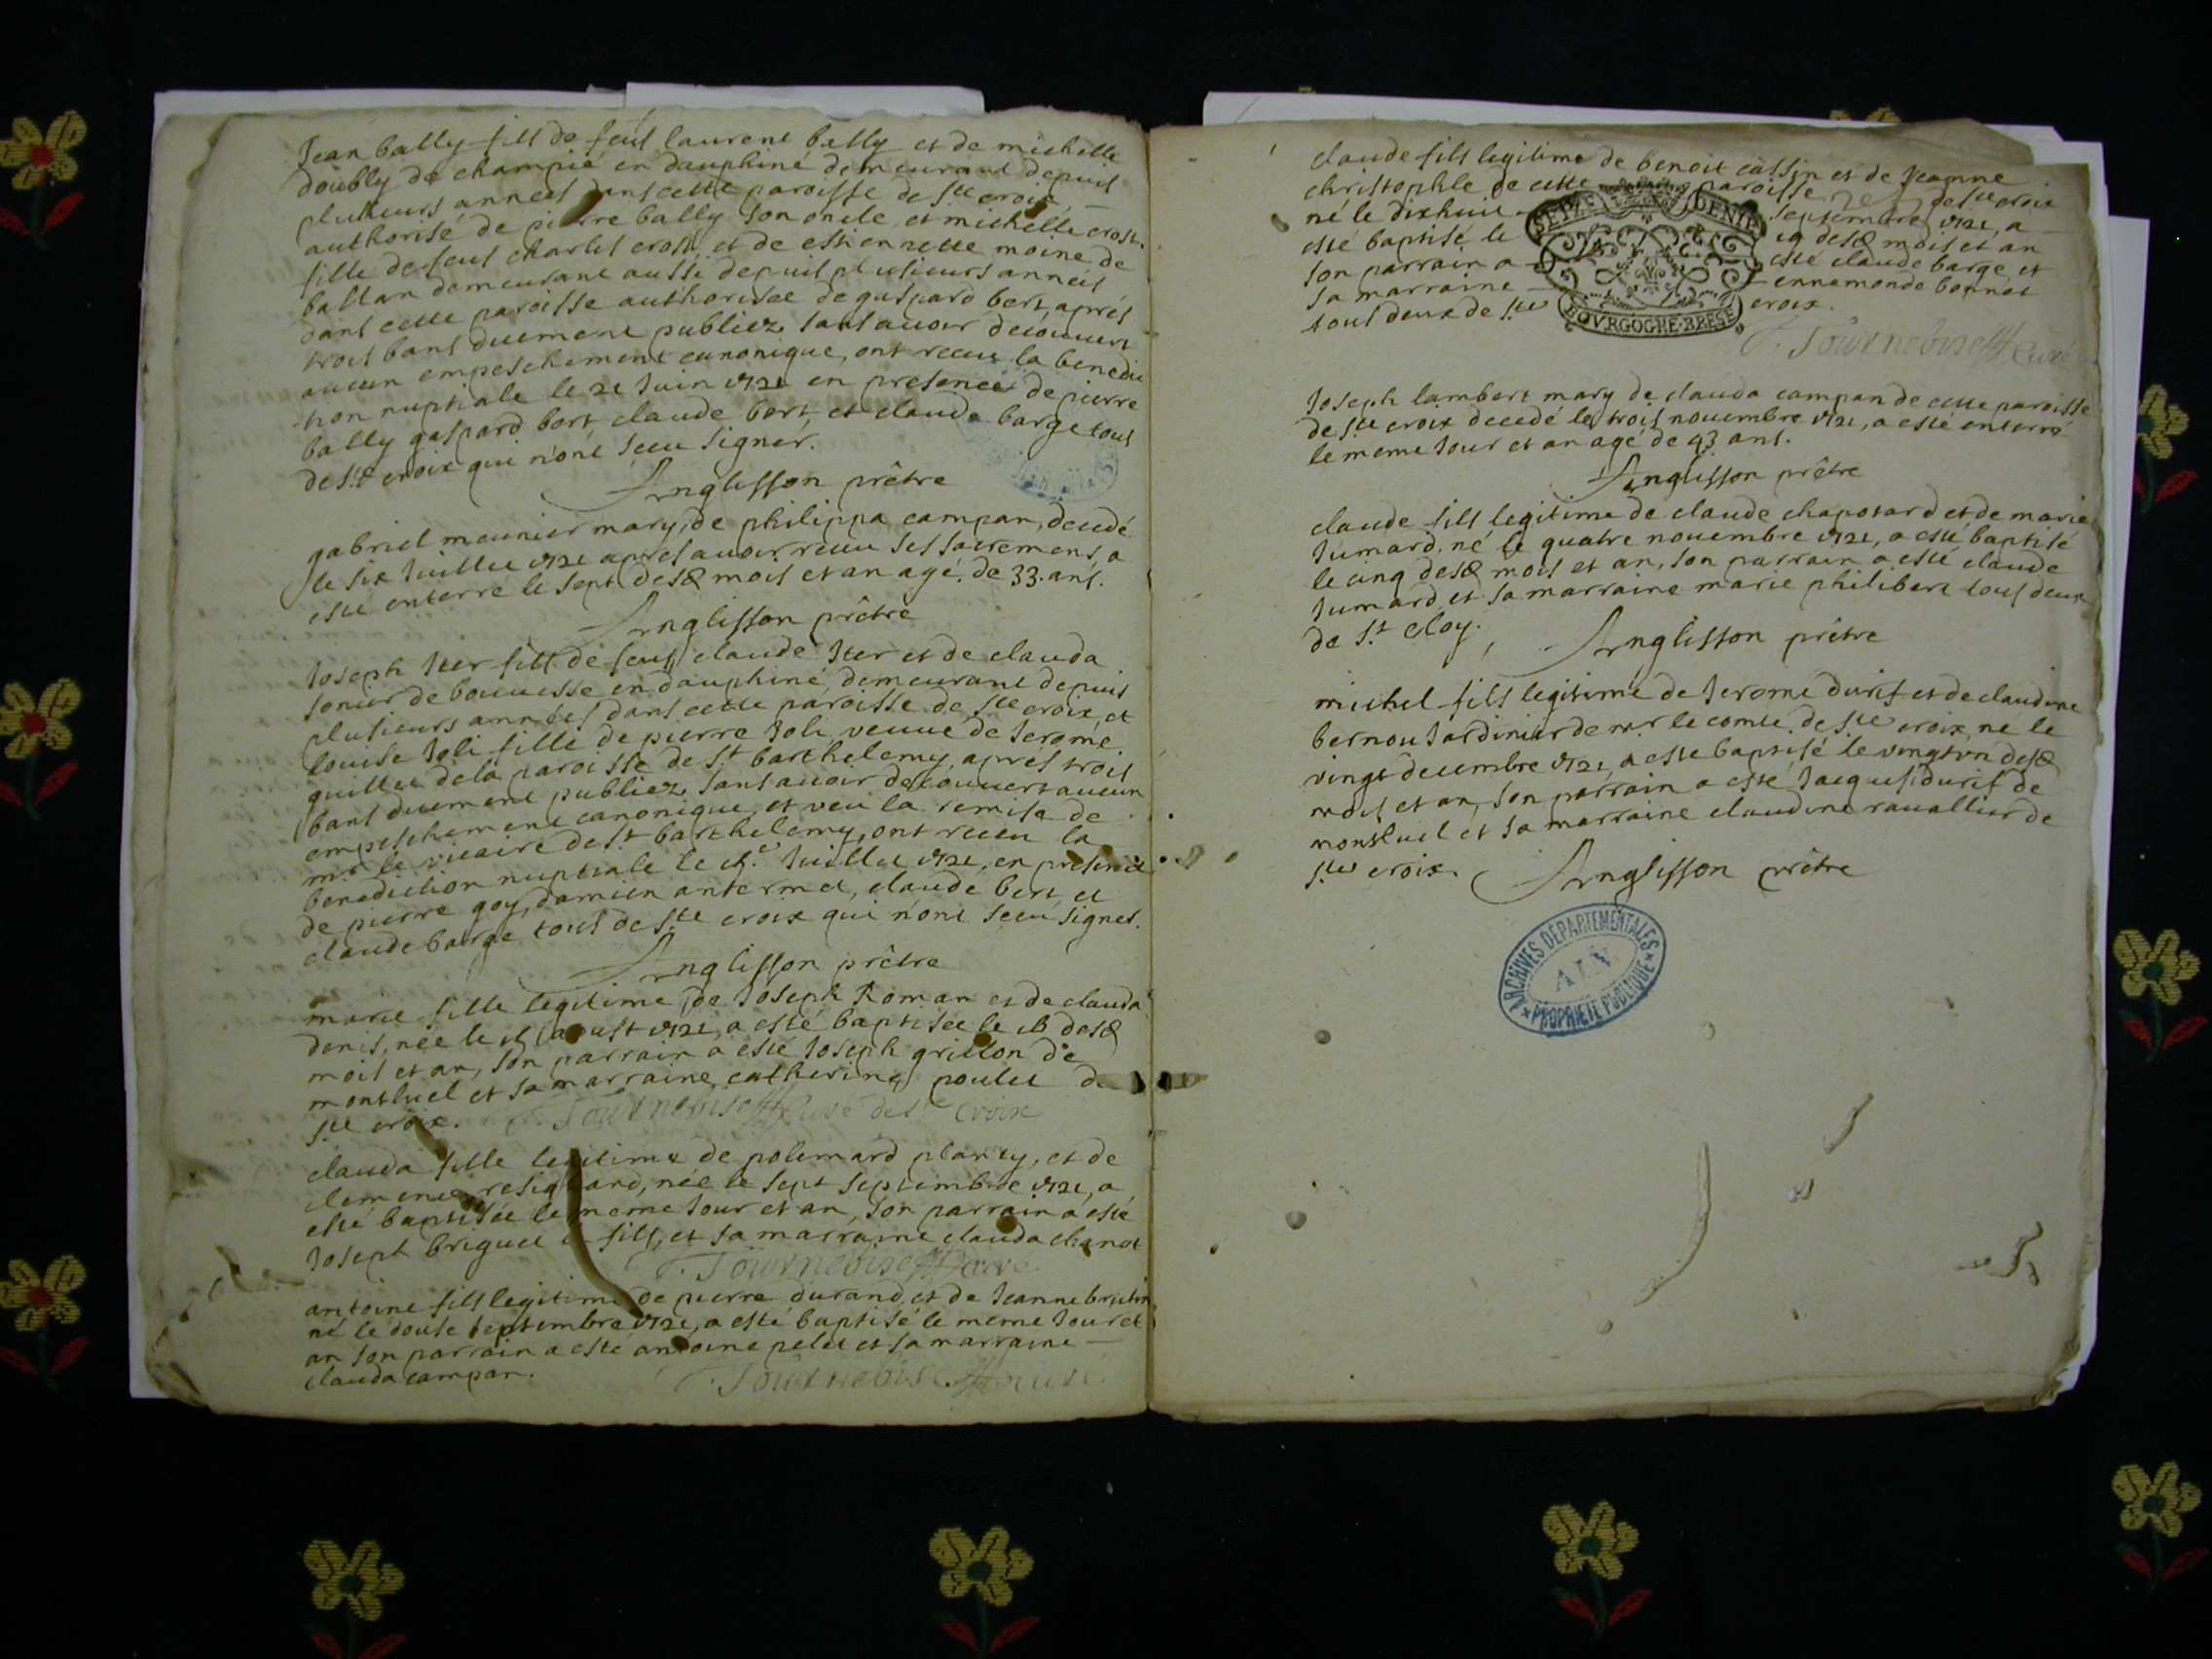 Jean bally fils de feus laurent bally et de michelle
doubly de champié en dauphiné demeurant depuis
plusieurs années dans cette paroisse de Ste croix
authorisé de pierre bally son oncle et michelle crost
fille de feus charles crost et de estiennette moine de
ballan demeurant aussi depuis plusieurs années
dans cette paroisse authorisée de gaspard bert, aprés
trois bans duement publiez sans auoir decouuert
aucun empeschement canonique, ont receu la benedic
tion nuptiale le 21 Juin 1721 en presence de pierre
bally gaspard bert claude bert et claude barge tous
de Ste croix qui n'ont sceu signer.
Anglisson prêtre
gabriel meunier mary de philippa campan, decedé
le six Juillet 1721 apres auoir receu ses sacremens, a
esté enterré le sept desd mois et an agé de 33. ans.
Anglisson prêtre
Joseph Iter fils de feus claude Iter et de clauda
sonier de bouuesse en dauphiné, demeurant depuis
plusieurs années dans cette paroisse de Ste croix, et
louise Joli fille de pierre Joli veuue de Jerome
quillet de la paroisse de St barthelemy, apres trois
bans duement publiez sans auoir decouuert aucun
empeschement canonique, et veu la remise de
mr le vicaire de St barthelemy, ont receu la
benediction nuptiale le Juillet 1721, en presence
de pierre goy, damien antermet, claude bert, et
claude barge tous de Ste croix qui n'ont sceu signer.
Anglisson prêtre
marie fille legitime de Joseph Roman et de clauda
denis, née le aoust 1721, a esté baptisée le desd
mois et an, son parrain a esté Joseph grillon de
montluel et sa marraine catherine poulet de
Ste croix. Tournebise curé de Ste Croix
clauda fille legitime de polemard planty, et de
clemence, née le sept septembre 1721, a
esté baptisée le meme Jour et an, son parrain a esté
Joseph briguet fils, et sa marraine clauda chanot
Tournebise curé
antoine fils legitime de pierre durand, et de Jeanne
né le douse septembre 1721, a esté baptisé le meme Jour et
an son parrain a esté antoine pelet et sa marraine
clauda campan.
Tournebise curé
claude fils legitime de benoit cassin et de Jeanne
christophle de cette paroisse de Ste croix
né le dixhuit septembre 1721, a
esté baptisé le 19 desd mois et an
son parrain a esté claude barge et
sa marraine ennemonde bonnet
tous deux de Ste croix.
SEIZE DENIE
BOVRGOGNE·BRESE
Tournebise curé
Joseph lambert mary de clauda campan de cette paroisse
de Ste croix decedé le trois nouembre 1721, a esté enterré
le meme Jour et an agé de 43 ans.
Anglisson prêtre
claude fils legitime de claude chaposard et de marie
Jumard, né le quatre nouembre 1721, a esté baptisé
le cinq desd mois et an, son parrain a esté claude
Jumard et sa marraine marie philibert tous deux
de St eloy. Anglisson prêtre
michel fils legitime de Jerome durif et de claudine
bernou Jardinier de mr le comte de Ste croix, né le
vingt decembre 1721, a esté baptisé le vingtun desd
mois et an, son parrain a esté Jacques durif de
montluel et sa marraine claudine rauallier de
Ste croix. Anglisson prêtre
ARCHIVES DEPARTEMENTALES
AIN
PROPRIETE PUBLIQUE